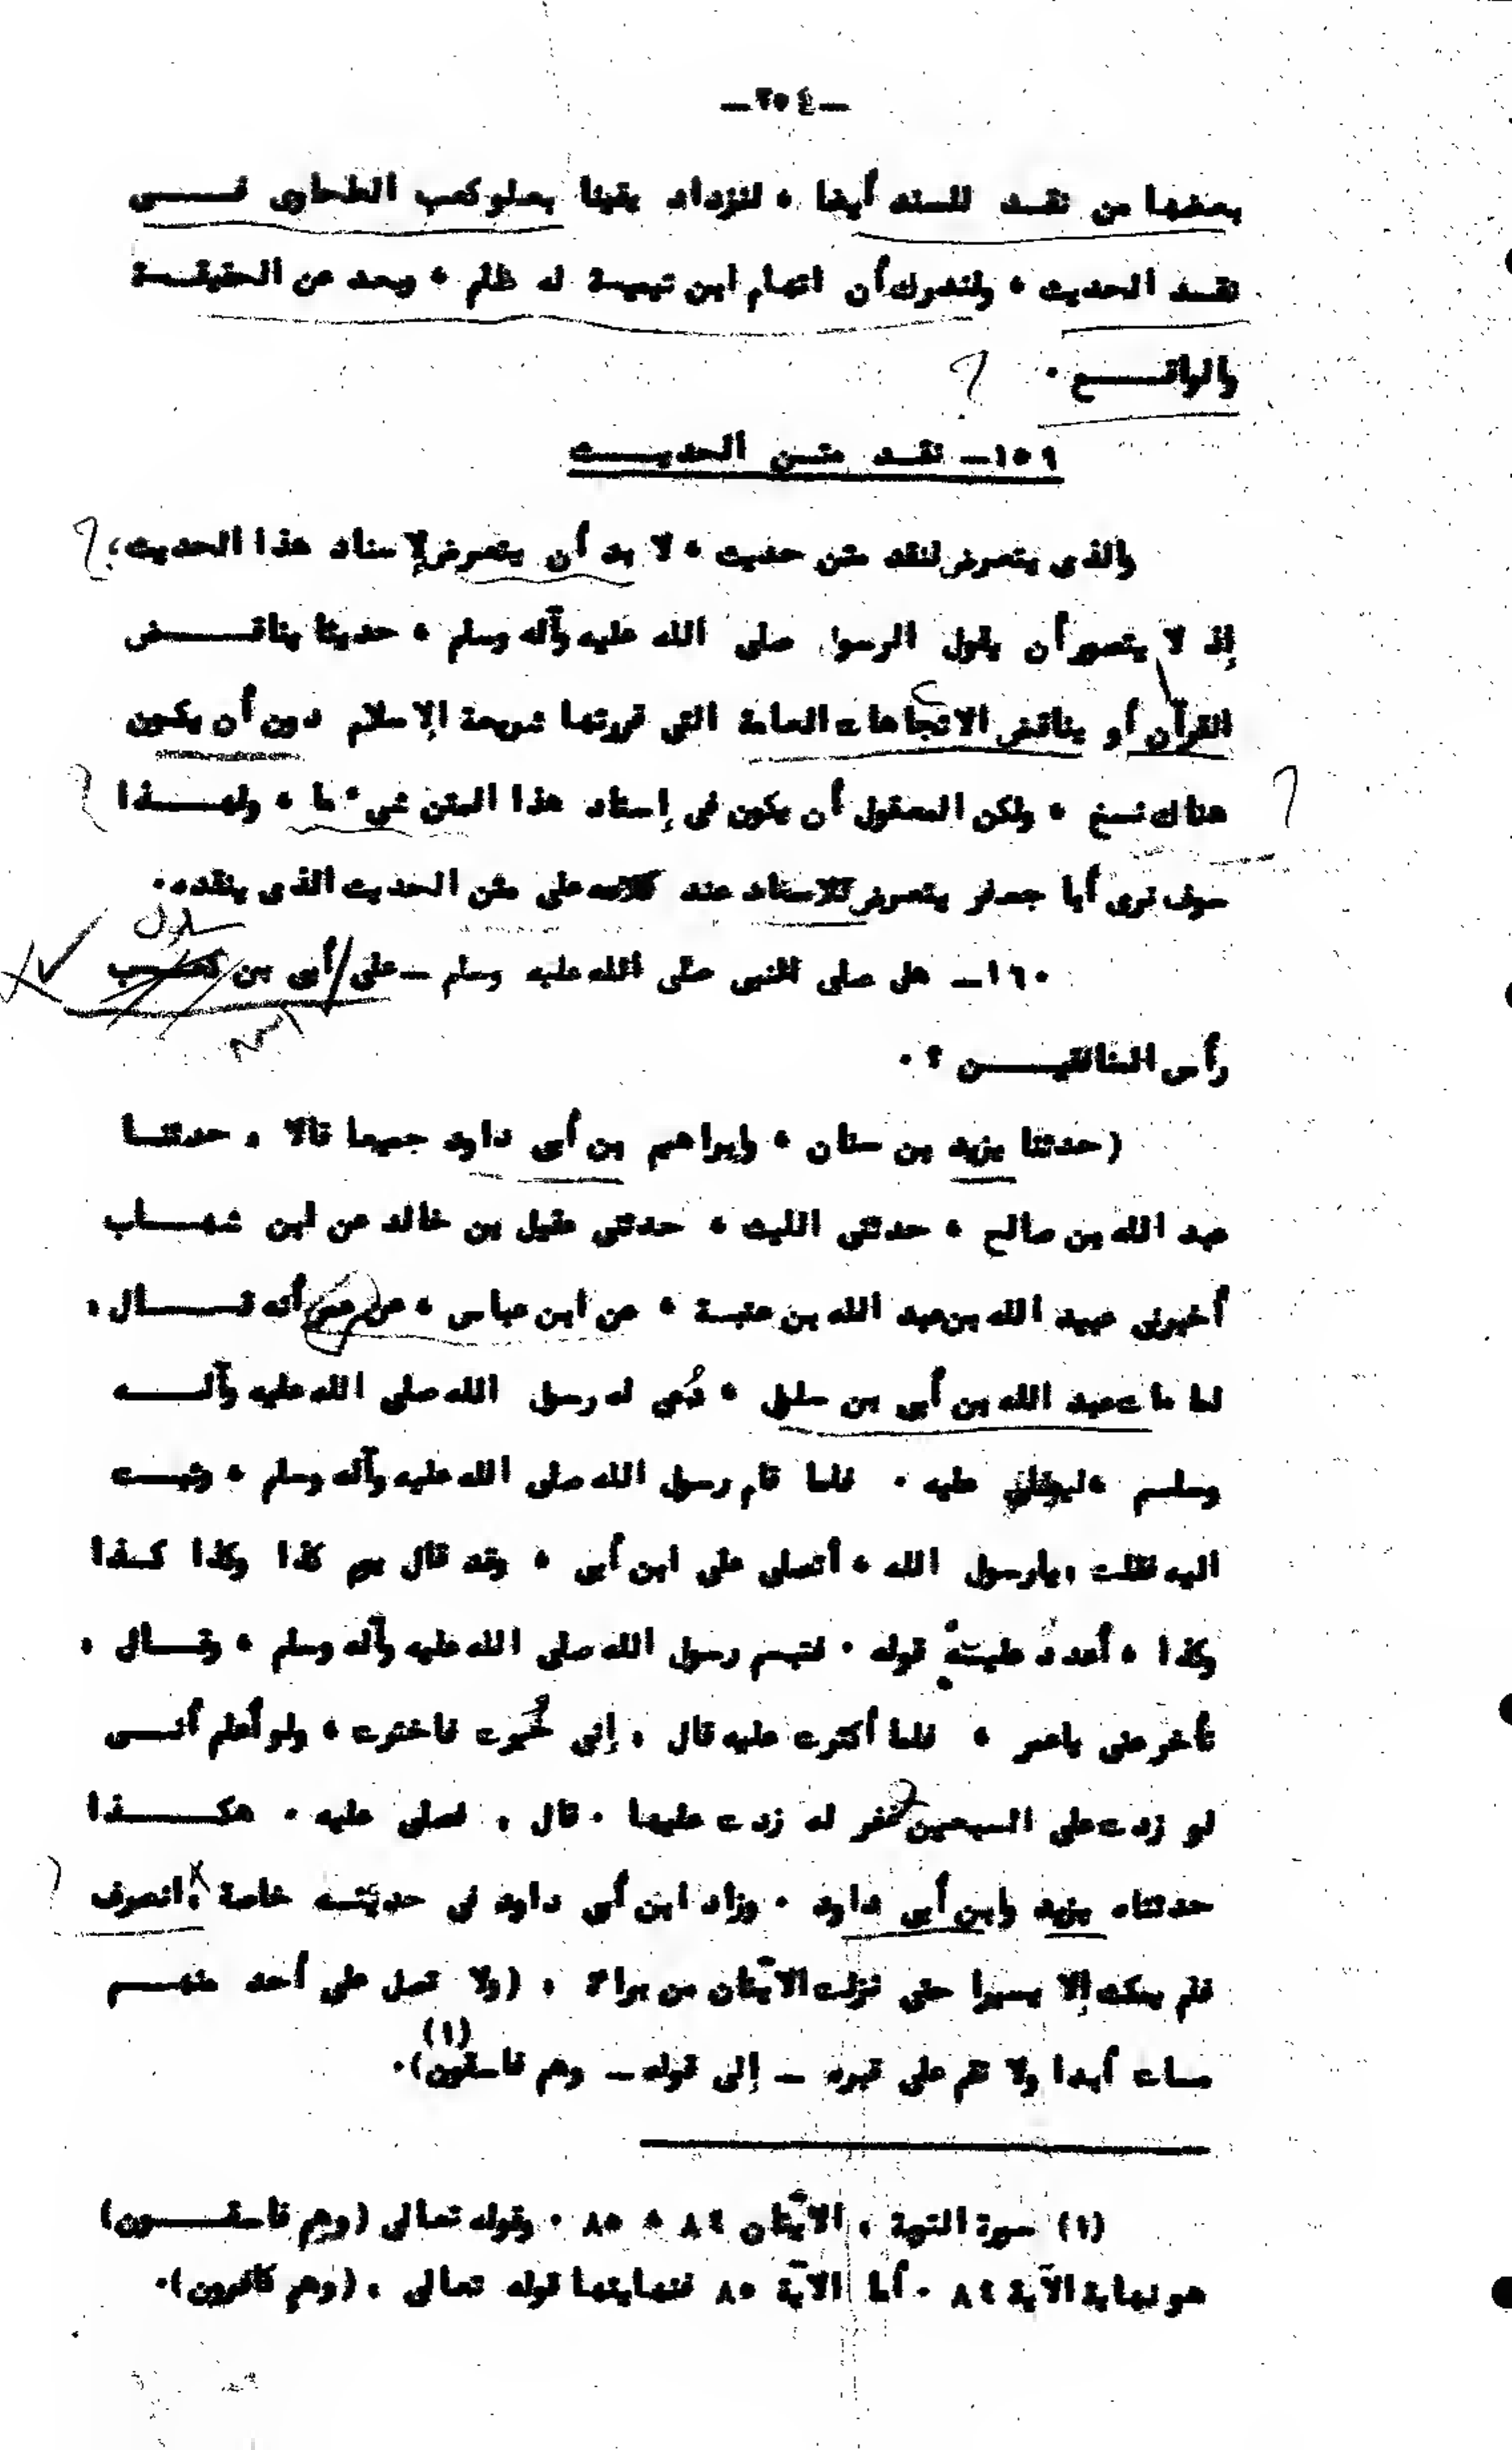 — ٢٥٤ —
بعضها من نقد للسند أيضا ، لنزداد يقينا بعلو كعب الطحاوى فى
نقد الحديث ، ولندرك أن اتهام ابن تيمية له ظلم ، وبعد عن الحقيقة
والواقع .
١٥٩ـ نقد متن الحديث
والذى يتعرض لنقد متن حديث ، لا بد أن يتعرض لإسناد هذا الحديث ،
إذ لا يتصور أن يقول الرسول صلى الله عليه وآله وسلم ، حديثا يناقض
القرآن أو يناقض الاتجاهات العامة التى قررتها شريعة الإسلام دون أن يكون
هناك نسخ ، ولكن المعقول أن يكون فى إسناد هذا المتن شىء ما ، ولهذا
سوف نرى أبا جعفر يتعرض للاسناد عند كلامه على متن الحديث الذى ينقده.
سلول
١٦٠ـ هل صلى النبى صلى الله عليه وسلم ـ على / أبى بن كعب
رأس المنافقين ؟ .
(حدثنا يزيد بن سنان ، وإبراهيم بن أبى داود جميعا قالا ، حدثنا
عبد الله بن صالح ، حدثنى الليث ، حدثنى عقيل بن خالد عن ابن شهاب
أخبرنى عبيد الله بن عبد الله بن عتبة ، عن ابن عباس ، عن عمر أنه قال ،
لما مات عبد الله بن أبى بن سلول ، دُعى له رسول الله صلى الله عليه وآله
وسلم ، ليصلى عليه . فلما قام رسول الله صلى الله عليه وآله وسلم ، وثبت
اليه فقلت ، يارسول الله ، أتصلى على ابن أبى ، وقد قال يوم كذا وكذا كذا
وكذا ، أعدد عليه قوله . فتبسم رسول الله صلى الله عليه وآله وسلم ، وقال ،
تأخر عنى ياعمر ، فلما أكثرت عليه قال ، إنى خُيرت فاخترت ، ولو أعلم أنى
لو زدت على السبعين غفر له زدت عليها . قال ، فصلى عليه . هكذا
حدثناه يزيد وابن أبى داود . وزاد ابن أبى داود فى حديثه خاصة ، انصرف
فلم يمكث إلا يسيرا حتى نزلت الآيتان من براءة ، (ولا تصل على أحد منهم
مات أبدا ولا تقم على قبره ـ إلى قوله ـ وهم فاسقون) (١).
(١) سورة التوبة ، الآيتان ٨٤ ، ٨٥ . وقوله تعالى (وهم فاسقون)
هو نهاية الآية ٨٤ . أما الآية ٨٥ فنهايتها قوله تعالى ، (وهم كافرون).